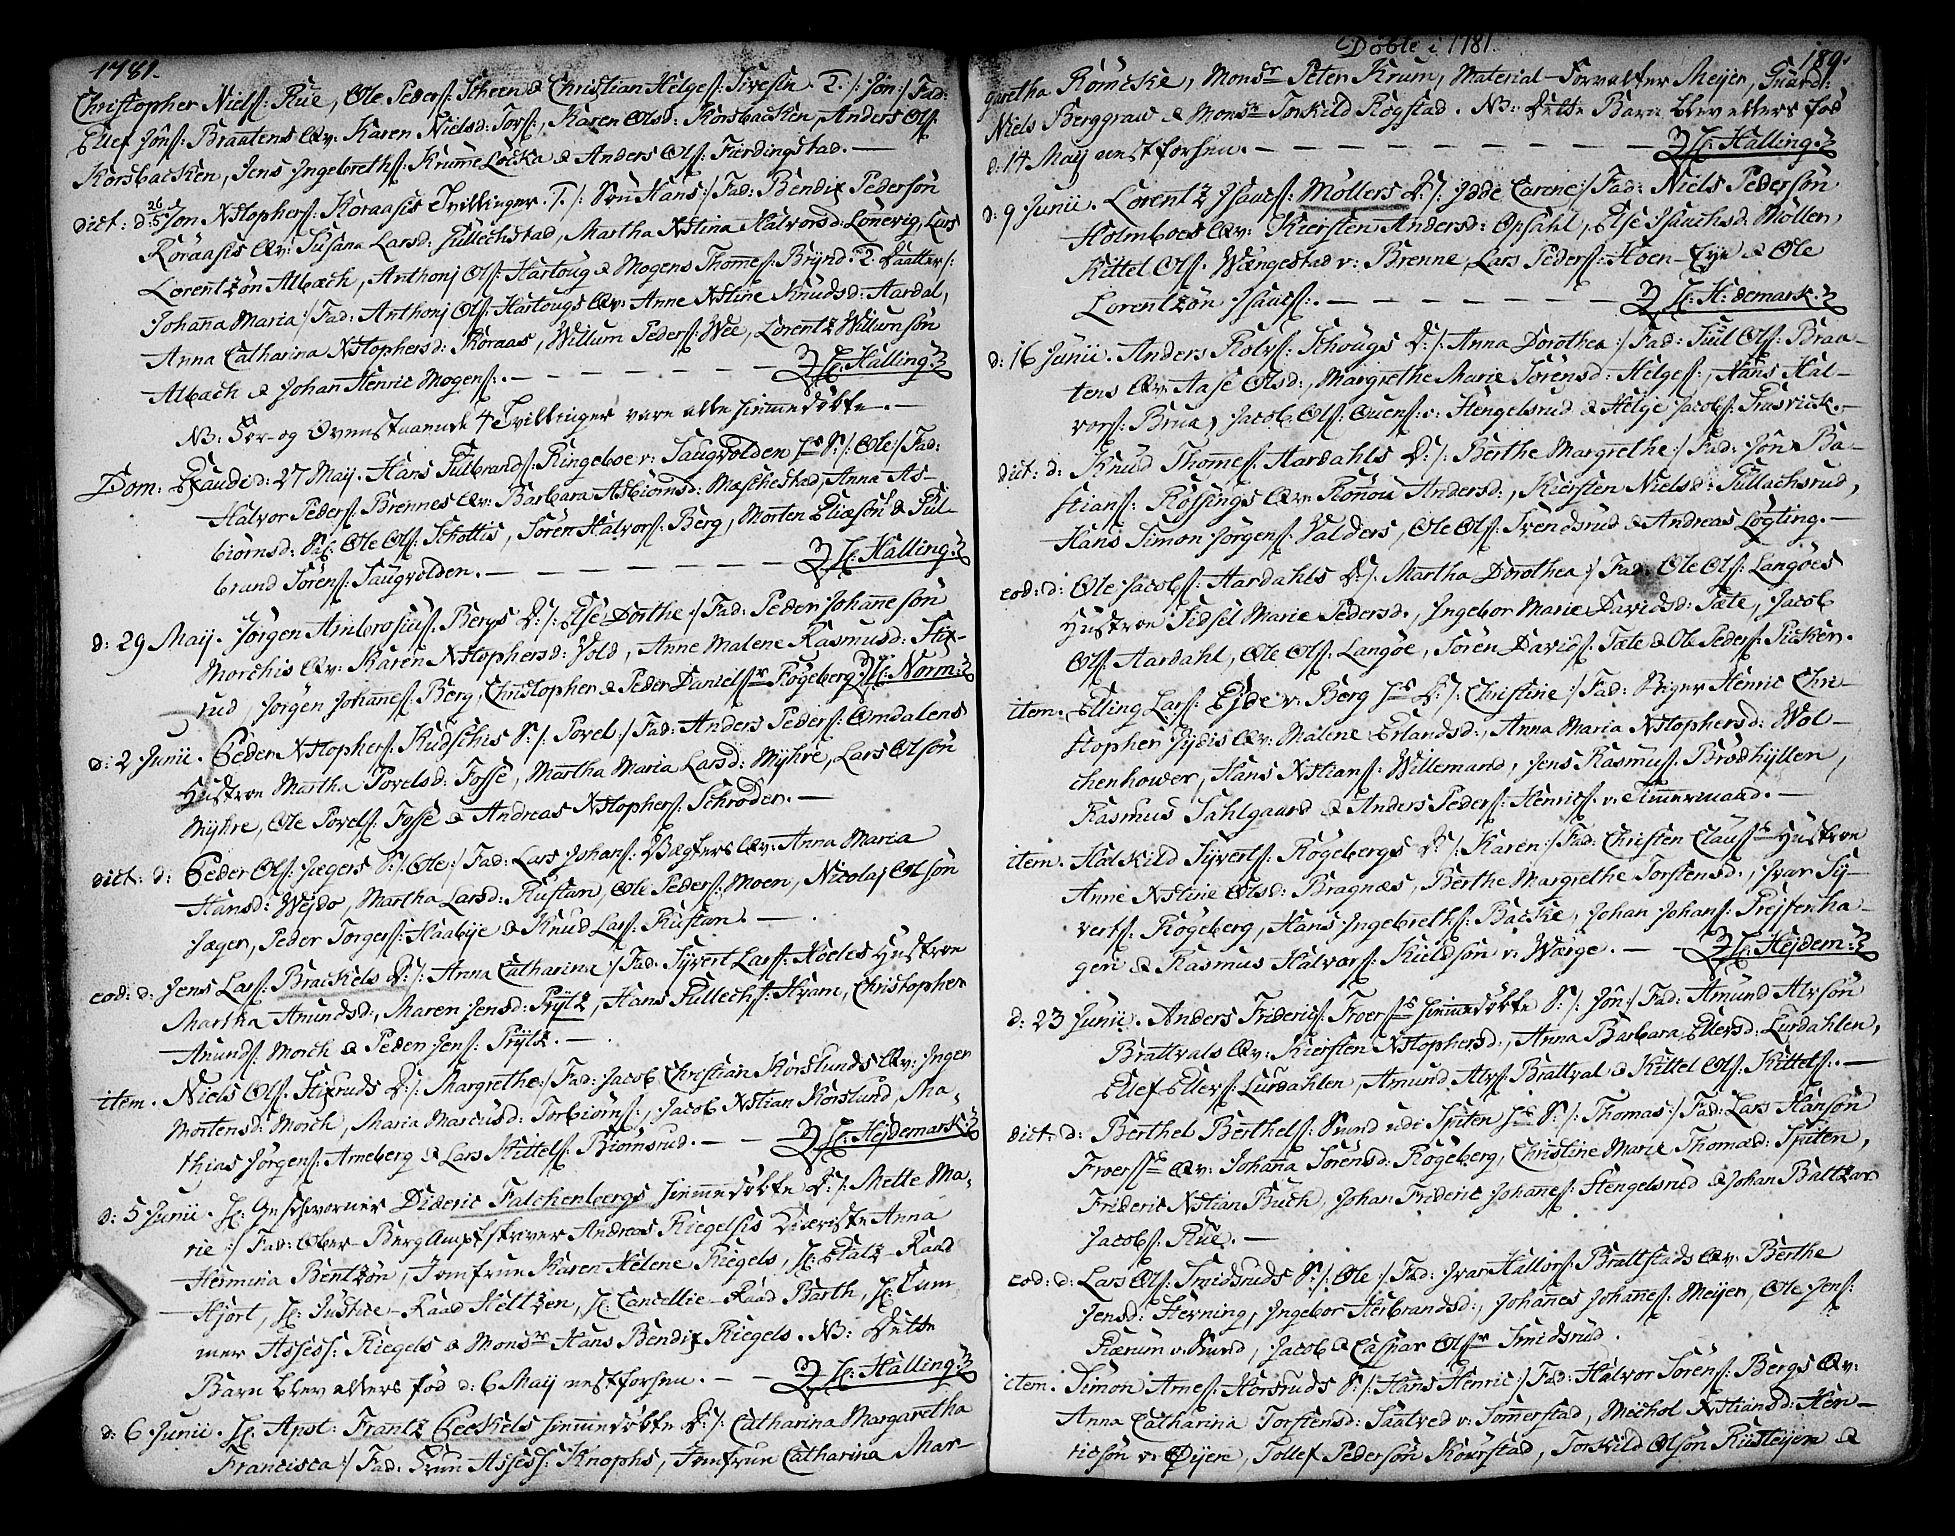 1781.
Christopher Nielsſ: Rue, Ole Pedersſ: Scheen & Christian Helgesſ: Tvestie. T. /: Jòn :/ Fad:
Ellef Jònsſ: Braatens Qv: Karen Nielsd: Torsſ:, Karen Olsd: Korsbacken, Anders Olsſ:
Korsbacken, Jens Ingebrethsſ: Krumme Löcka & Anders Olsſ: Fierdingstad. —
dict: d: 26/5 Jon Xstophersſ: Koraasis Tvillinger. T. /: Sòn Hans :/ Fad: Bendix Pedersòn
Kòraasis Qv: Susana Larsd: Fullechstad, Martha Xstina Halvorsd: Lònevig, Lars
Lorentzòn Albach, Anthonj Olsſ: Hartoug & Mogens Thomesſ: Brÿnd. T. Daatter /:
Johana Maria :/ Fad: Anthonj Olsſ: Hartougs Qv: Anne Xstine Knudsd: Aardal,
Anna Catharina Xstophersd: Koraas, Willum Pedersſ: Wee, Lorentz Willumsòn
Albach & Johan Henric Mogensſ: . — — — — — H: Halling
NB: For- og Ovenstaaende 4 Tvillinger vare alle hiemedöbte. —
Dom: Exaudi d: 27 Maÿ. Hans Fulbrandsſ: Ringeboe v: Saugvolden Hs S: /: Ole :/ Fad:
Halvor Pedersſ: Brennes Qv: Barbara Asbiornsd: Mæchestad, Anna As-
biornsd: Ibd: Ole Olsſ: Schottis, Sòren Halvorsſ: Berg, Morten Eliæsòn & Ful-
brand Sòrensſ: Saugvolden. — — — — — — H: Halling
d: 29 Maÿ. Jòrgen Ambrosiusſ: Bergs D: /: Else Dorthe :/ Fad: Peder Johanesòn
Morchis Qv: Karen Xstophersd: Vold, Anne Malene Rasmusd: Stix-
rud, Jòrgen Johanesſ: Berg, Christopher & Peder Danielsſr Rògeberg. H: Norm:
d: 2 Junii. Peder Xstophersſ: Kudschis S: /: Povel :/ Fad: Anders Pedersſ: Omdalens
Hustroe Martha Povelsd: Fosse, Martha Maria Larsd: Mÿhre, Lars Olsòn
Mÿhre, Ole Povelsſ: Fosse & Andreas Xstophersſ: Schrøder. —
dict: d: Peder Olsſ: Jægers S: /: Ole :/ Fad: Lars Johansſ: Vægters Qv: Anna Maria
Hansd: Wejdo, Martha Larsd: Rustan, Ole Pedersſ: Moen, Nicolaj Olsòn
Jæger, Peder Torgersſ: Haabÿe & Knud Larsſ: Rustan. —
eod: d: Jens Larsſ: Brackels D: /: Anna Catharina :/ Fad: Sÿvert Larsſ: Hoeles Hustroe
Martha Amundsd:, Maren Jensd: Prÿtz, Hans Fullechsſ: Hvam, Christopher
Anundsſ: Morch & Peder Jensſ: Prÿtz. —
item. Niels Olsſ: Stixruds D: /: Margrethe :/ Fad: Jacob Christian Korslunds Qv: Inger
Mortensd: Morch, Maria Marcusd: Torbiornsſ:, Jacob Xstian Korslund, Ma-
thias Jòrgensſ: Arneberg & Lars Kittelsſ: Biornsrud. — — H: Hejdemark
d: 5 Junii. H: Geschworner Dideric Falchenbergs hiemedöbte D: /: Mette Ma-
rie :/ Fad: Ober-Berg Amptskriver Andreas Riegelsis Kiæreste Anna
Hermina Bentzòn, Jomfrue Karen Helene Riegels, H: Etatz-Raad
Hjort, H: Justice-Raad Heltzen, H: Cancellie-Raad Barth, H: Cam-
mer Assess: Riegels & Monsr Hans Bendix Riegels. NB: Dette
Barn blev ellers fød d: 6 Maÿ nestforhen. — — H: Halling
d: 6 Junii. H: Apot: Frantz Checkels hiemmedöbte D: /: Catharina Margaretha
Francisca :/ Fad: Frue Assess: Knophs, Jomfrue Catharina Mar-
Döbte i 1781.
189.
garetha Römcke, Monsr Peter Krum, Material-Forvalter Meÿer, Guard:
Niels Berggrav & Monsr Torkild Rogstad. NB: Dette Barn blev ellers fød
d: 14 Maÿ nestforhen. — — — — — — — H: Halling
d: 9 Junii. Lorentz Isacsſ: Mòllers D: /: Jdde Carene :/ Fad: Niels Pedersòn
Holmboes Qv: Kiersten Andersd: Opsahl, Else Isachsd: Mòller,
Kittel Olsſ: Wængestad v: Brenne, Lars Pedersſ: Hoen-Eÿe & Ole
Lorentzòn Isacsſ: . — — — — — H: Hdemark
d: 16 Junii. Anders Rolvsſ: Schougs D: /: Anna Dorothea :/ Fad: Juul Olsſ: Braa-
tens Qv: Aase Olsd:, Margrethe Marie Sòrensd: Helgesſ:, Hans Hal-
vorsſ: Brua, Jacob Olsſ: Ouensſ: v: Hengelsrud & Helge Jacobsſ: Fusrick. —
dict: d: Knud Thomesſ: Aardahls D: /: Berthe Margrethe :/ Fad: Jòn Ba-
stiansſ: Ròssings Qv: Ronou Andersd:, Kiersten Nielsd: Fullachsrud,
Hans Simon Jòrgensſ: Valders, Ole Olsſ: Svendsrud & Andreas Lògting. —
eod: d: Ole Jacobsſ: Aardahls D: /: Martha Dorothea :/ Fad: Ole Olsſ: Langòes
Hustroe Sidsel Marie Pedersd:, Ingebor Marie Davidsd: Tate, Jacob
Olsſ: Aardahl, Ole Olsſ: Langòe, Sòren Davidsſ: Tate & Ole Pedersſ: Picken.
item. Elling Larsſ: Ejde v: Berg Hs D: /: Christine :/ Fad: Birger Henric Chri-
stopher Jÿdis Qv: Malene Erlandsd:, Anna Maria Xstophersd: Wol-
chenhower, Hans Xstiansſ: Willemand, Jens Rasmusſ: Brødhÿller,
Rasmus Dahlgaard & Anders Pedersſ: Henricsſ: v: Timmermand. —
item. Halskild Sÿvertsſ: Rògebergs D: /: Karen :/ Fad: Christen Claussſs Hustroe
Anne Xstine Olsd: Bragnæs, Berthe Margrethe Torstensd:, Ivar Sÿ-
vertsſ: Rògeberg, Hans Ingebrethsſ: Backe, Johan Johansſ: Prejtenha-
gen & Rasmus Halvorsſ: Kieldsòn v: Værge. — — H: Hejdem:
d: 23 Junii. Anders Fridericsſ: Froersſs hiemedöbte S: /: Jòn :/ Fad: Amund Alvsòn
Brattvals Qv: Kiersten Xstophersd:, Anna Barbara Ellevsd: Lurdahlen,
Ellef Ellevsſ: Lurdahlen, Amund Alvsſ: Brattval & Kittel Olsſ: Kittelsſ: . —
dict: d: Berthel Berthelsſ: Sund udi Spiten Hs S: /: Thomas :/ Fad: Lars Hansòn
Froersſs Qv: Johana Sòrensd: Rògeberg, Christine Marie Thomæd: Spiten,
Frideric Xstian Buch, Johan Frideric Johanesſ: Hengelsrud & Johan Baltzar
Jacobsſ: Rue. —
eod: d: Lars Olsſ: Smidsruds S: /: Ole :/ Fad: Ivar Hallvorsſ: Brattstads Qv: Berthe
Jensd: Herning, Ingebor Herbrandsd:, Johanes Johanesſ: Meijer, Ole Jensſ:
Piærum v: Sund, Jacob & Caspar Olsſr Smidsrud.
item. Simon Arnesſ: Horsruds S: /: Hans Henric :/ Fad: Halvor Sòrensſ: Bergs Qv:
Anna Catharina Torstensd: Saatved v: Sommerstad, Mechol Xstiansd: Hen-
ricsòn v: Öÿern, Tollef Pedersòn Kòrstad, Torkild Olsòn Rusteÿern &